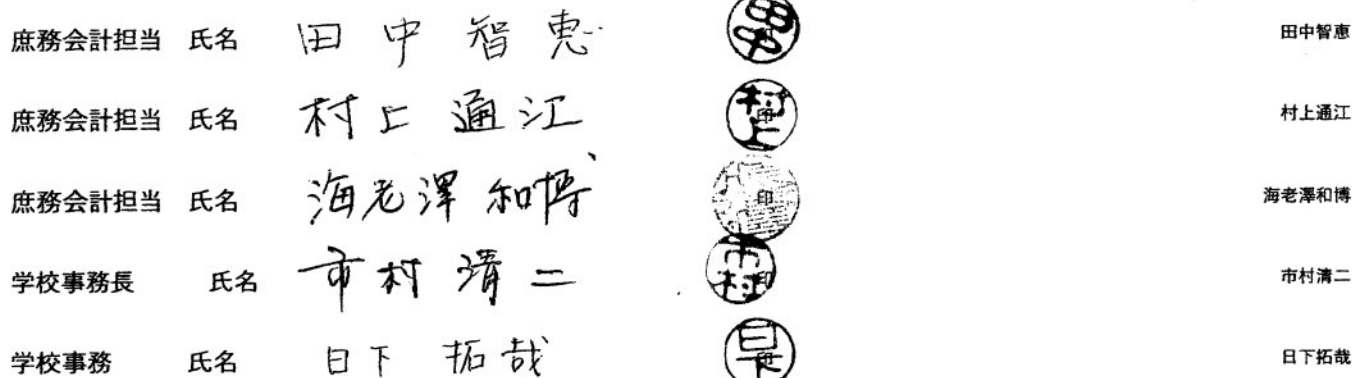 庶務会計担当 氏名 田中智恵 田中 印 田中智恵
庶務会計担当 氏名 村上通江 村上 印 村上通江
庶務会計担当 氏名 海老澤和博 印 海老澤和博
学校事務長 氏名 市村清二 市村 印 市村清二
学校事務 氏名 日下拓哉 日下 印 日下拓哉